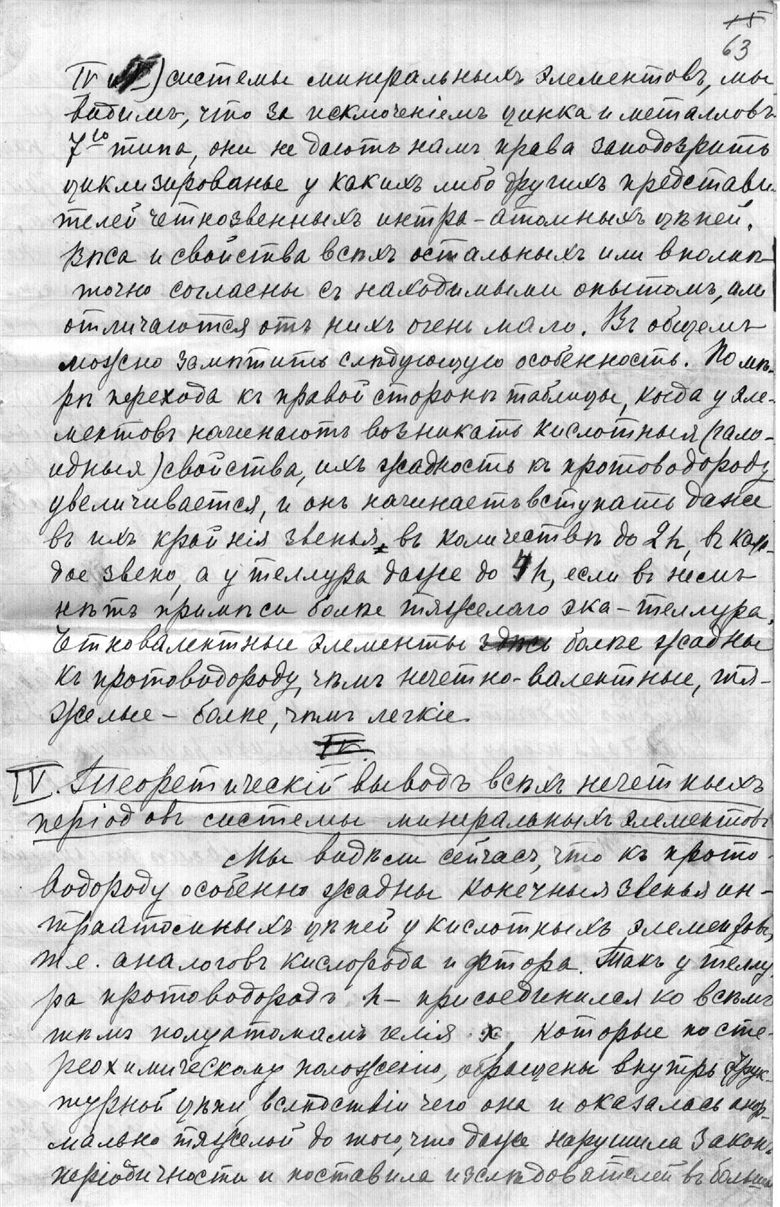 15
63
IV и VI) системы минеральныхъ элементовъ, мы
видимъ, что за исключеніемъ цинка и металловъ
7го типа, они не даютъ намъ права заподозрить
циклизированье у какихъ либо другихъ представи-
телей четнозвенныхъ интра-атомныхъ цѣпей.
Вѣса и свойства всѣхъ остальныхъ или вполнѣ
точно согласны съ находимыми опытомъ, или
отличаются отъ нихъ очень мало. Въ общемъ
можно замѣтить слѣдующую особенность. По мѣ-
рѣ перехода къ правой сторонѣ таблицы, когда у эле-
ментовъ начинаютъ возникать кислотныя (гало-
идныя) свойства, ихъ жадность къ протоводороду
увеличивается, и онъ начинаетъ вступать даже
въ ихъ крайнія звенья, въ количествѣ до 2h, въ каж-
дое звено, а у теллура даже до 4h, если въ немъ
нѣтъ примѣси болѣе тяжелаго эка-теллура.
Четновалентные элементы здѣсь болѣе жадны
къ протоводороду, чѣмъ нечетно-валентные, тя-
желые – болѣе, чѣмъ легкіе.
IV.
IV. Теоретическій выводъ всѣхъ нечетныхъ
періодовъ системы минеральныхъ элементовъ
Мы видѣли сейчасъ, что къ прото-
водороду особенно жадны конечныя звенья ин-
траатомныхъ цѣпей у кислотныхъ элементовъ,
т.е. аналоговъ кислорода и фтора. Такъ у теллу-
ра протоводородъ h – присоединился ко всѣмъ
тѣмъ полуатомамъ гелія x, которые по сте-
реохимическому положенію, обращены внутрь струк-
турной цѣпи вслѣдствіи чего она и оказалась анор-
мально тяжелой до того, что даже нарушила законъ
періодичности и поставила изслѣдователей въ большое